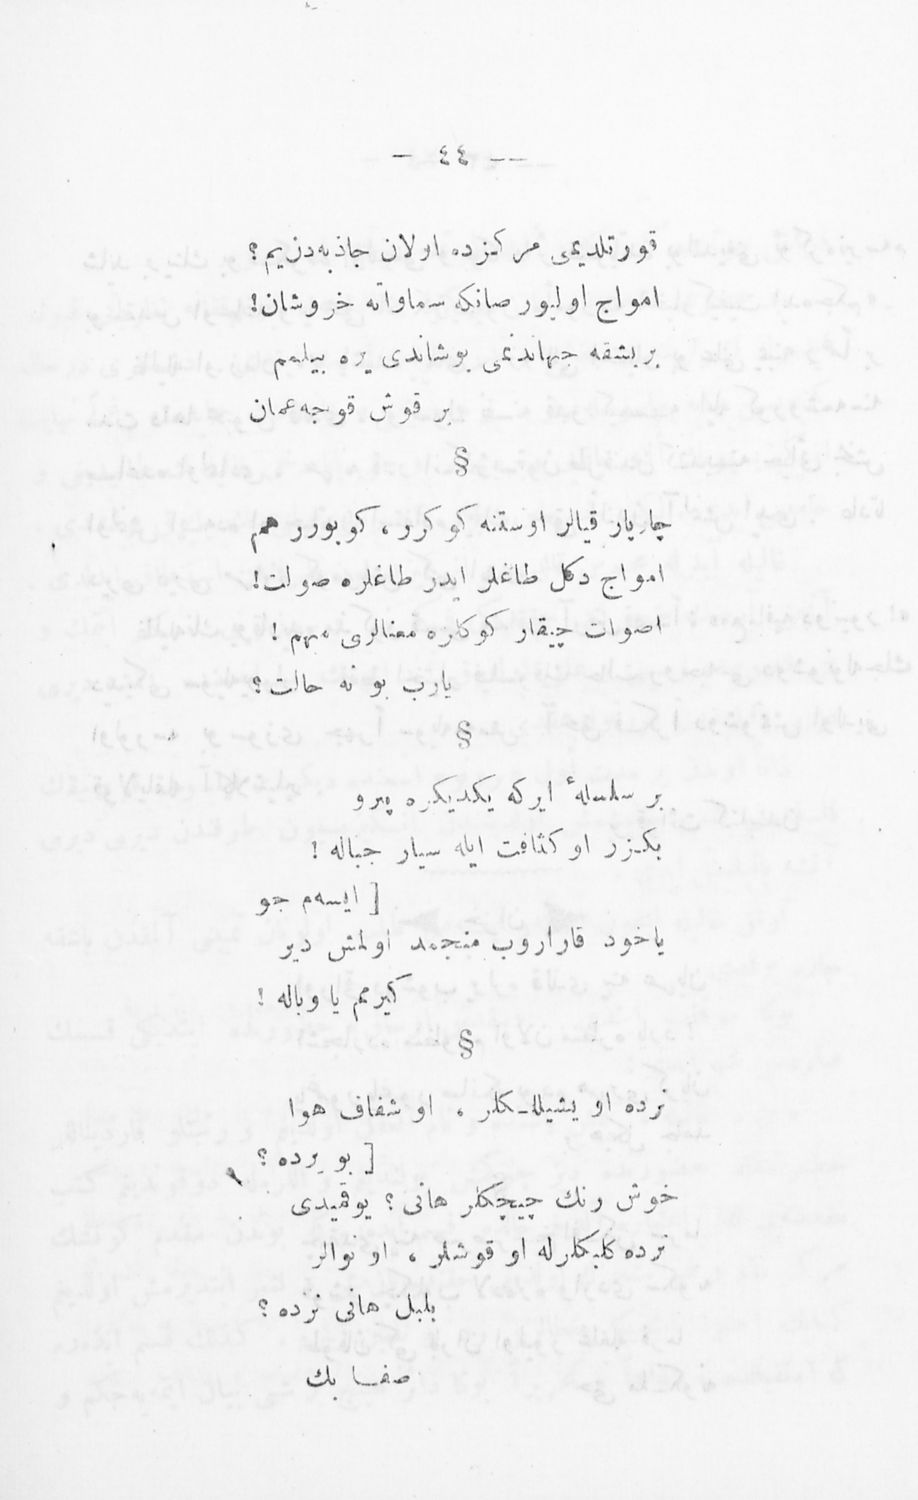 — ٤٤ —
قورتلدیمی مرکزده اولان جاذبه‌دن یم؟
امواج اولیور صانکه سماواته خروشان!
بربشقه جهاندنمی بوشاندی یره بیلمم
بر قوش قوجه عمان
§
چارپار قیالر اوستنه کوکرر، کوپورر هم
امواج دکل طاغلر ایدر طاغلره صولت!
اصوات چیقار کوکلره معنالری مبهم!
یارب بو نه حالت؟
§
بر سلسلهٔ ایرکه یکدیکره پیرو
بکزر او کثافت ایله سیار جباله!
[ ایسه‌م جو
یاخود قاراروب منجمد اولمش دیر
کیرمم یا وباله!
§
نرده او یشیللکلر، او شفاف هوا
[ بو یرده؟
خوش رنك چیچکلر هانی؟ یوقمیدی
نرده کلبکلرله او قوشلر، او نوالر
بلبل هانی نرده؟
صفا بك